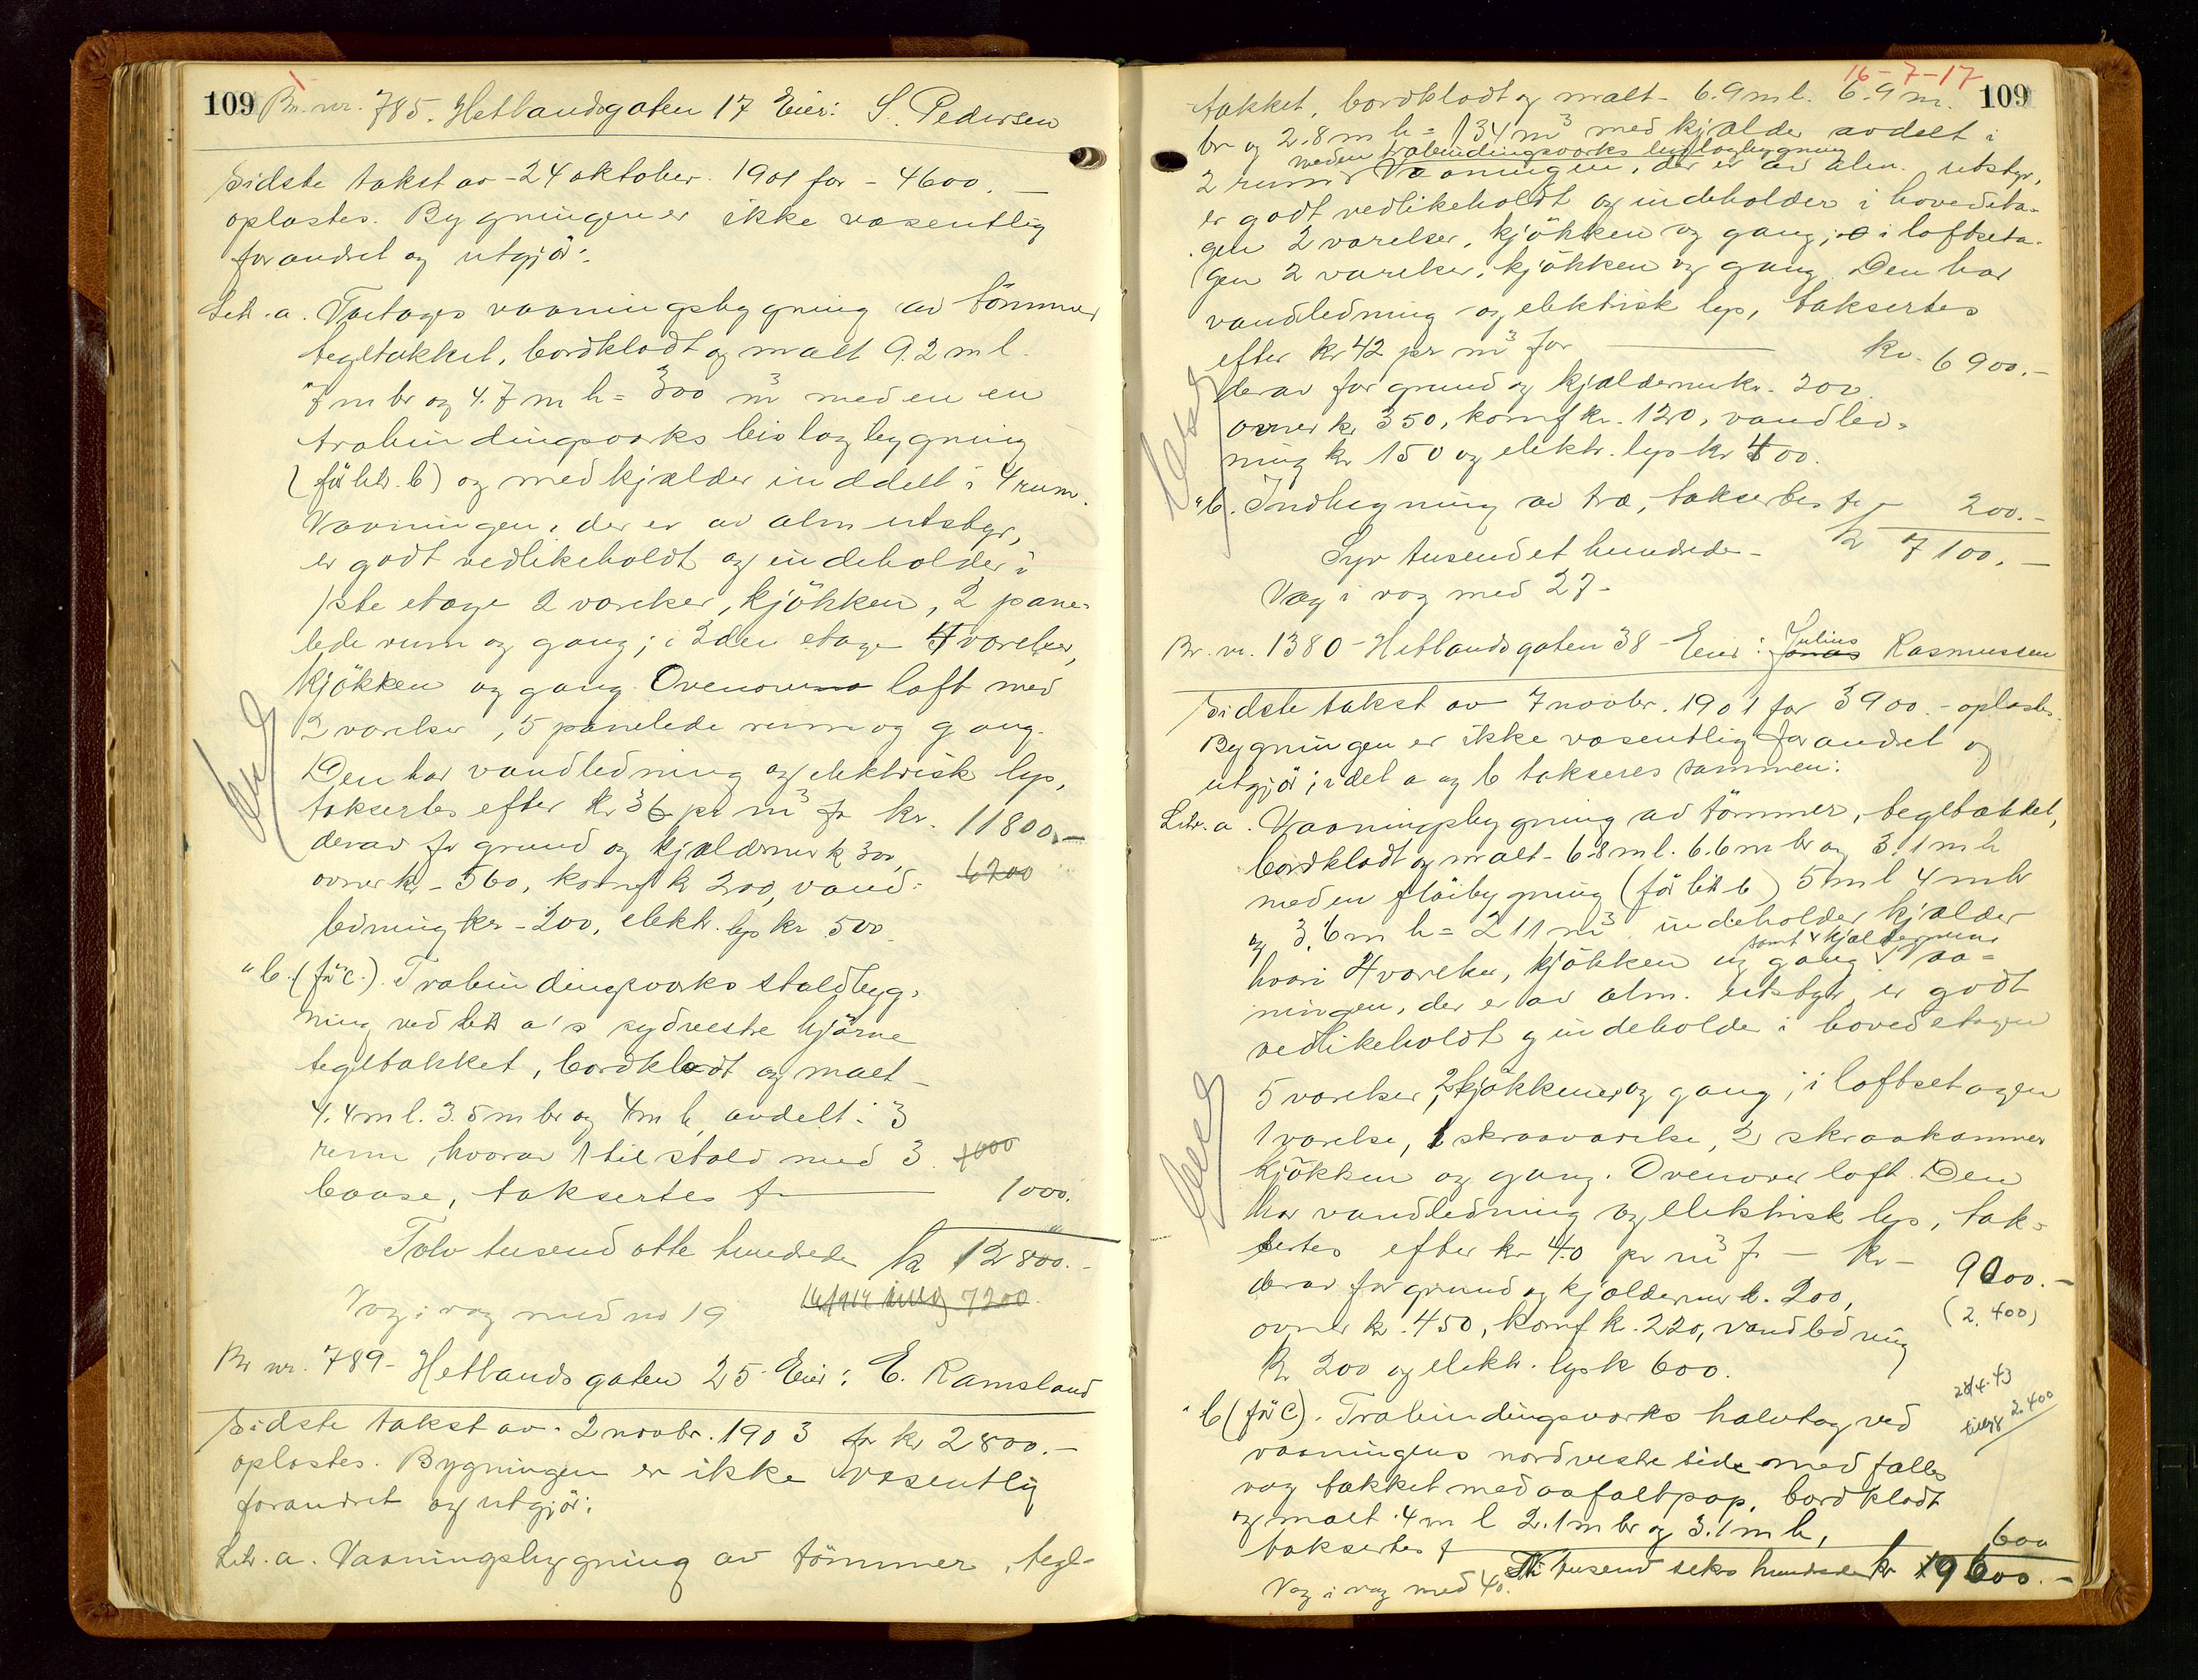 109 Br. nr. 785. Hetlandsgaten 17 Eier: S. Pedersen
Sidste takst av - 24 oktober. 1901 for - 4600. —
oplæstes. Bygningen er ikke væsentlig
forandret og utgjör:
Litr. a. Toetages vaaningsbygning av tömmer
tegltækket, bordklædt og malt 9.2 m l.
7 m br og 4.7 m h = 300 m³ med en en
træbindingsværks bislagbygning
(för litr. b) og med kjælder inddelt i 4 rum.
Vaaningen, der er av alm utstyr,
er godt vedlikeholdt og indeholder i
1ste etage 2 værelser, kjökken, 2 pane-
lede rum og gang; i 2den etage 4 værelser,
kjökken og gang. Ovenover loft med
2 værelser, 5 panelede rum og gang.
Den har vandledning og elektrisk lys,
taksertes efter kr 36 pr m³ for kr. 11800.—
derav for grund og kjældermur k 300,
ovner kr - 560, komf k 200, vand- 6200
ledning kr - 200, elektr. lys kr 500
" b. (för c.) Træbindingsværks staldbyg-
ning ved litr a's sydvestre hjörne
tegltækket, bordklædt og malt -
4.4 m l. 3.5 m br og 4 m h, avdelt i 3
rum, hvorav 1 til stald med 3 1000
baase, taksertes for — 1000.
Tolv tusend otte hundrede kr 12800.-
Væg i væg med no 19 7200
Br nr. 789 - Hetlandsgaten 25 Eier: E. Ramsland
Sidste takst av - 2 novbr. 1903 for kr 2800.—
oplæstes. Bygningen er ikke væsentlig
forandret og utgjör:
Litr. a. Vaaningsbygning av tömmer, tegl-
16-7-17
109
tækket, bordklædt og malt - 6.9 m l. 6.9 m.
br og 2.8 m h = 134 m³ med kjælder avdelt i
med en træbindingsværks bislagbygning
2 rum. Vaaningen, der er av alm. utstyr,
er godt vedlikeholdt og indeholder i hovedeta-
gen 2 værelser, kjökken og gang; i loftseta-
gen 2 værelser, kjökken og gang. Den har
vandledning og elektrisk lys, taksertes
efter kr 42 pr m³ for — kr. 6900.—
derav for grund og kjældermur kr. 200
ovner kr 350, komf kr. 120, vandled-
ning kr 150 og elektr. lys kr 400.
" b. Indhegning av træ, taksertes for 200.-
Syv tusend et hundrede - kr 7100.—
Væg i væg med 27 -
Br. nr. 1380 - Hetlandsgaten 38 - Eier: Jonas Julius Rasmussen
Sidste takst av 7 novbr. 1901 for 3900.- oplæstes.
Bygningen er ikke væsentlig forandret og
utgjör; idet a og b takseres sammen:
Litr. a. Vaaningsbygning av tömmer, tegltækket,
bordklædt og malt - 6.8 m l. 6.6 m br og 3.1 m h
med en flöibygning (för litr b) 5 m l 4 m br
og 3.6 m h = 211 m³ indeholder kjælder
samt kjælderrum
hvori 4 værelser, kjökken og gang. Vaa-
ningen, der er av alm. utstyr er godt
vedlikeholdt og indeholder i hovedetagen
5 værelser, 2 kjökkener og gang; i loftsetagen
1 værelse, 1 skraaværelse, 2 skraakammer
kjökken og gang. Ovenover loft. Den
har vandledning og elektrisk lys, tak-
sertes efter kr 40 pr m³ for — kr - 9000.—
derav for grund og kjældermur k. 200, (2.400)
ovner kr. 450, komf k. 220, vandledning
kr 200 og elektr. lys k 600.
28/4-43
tillegg 2.400
" b (för c). Træbindingsværks halvtag ved
vaaningens nordvestre side med fælles
væg tækket med asfaltpap, bordklædt
og malt. 4 m l 2.1 m br og 3.1 m h,
taksertes for — 600
Ni tusend seks hundrede kr 9600.—
Væg i væg med 40.